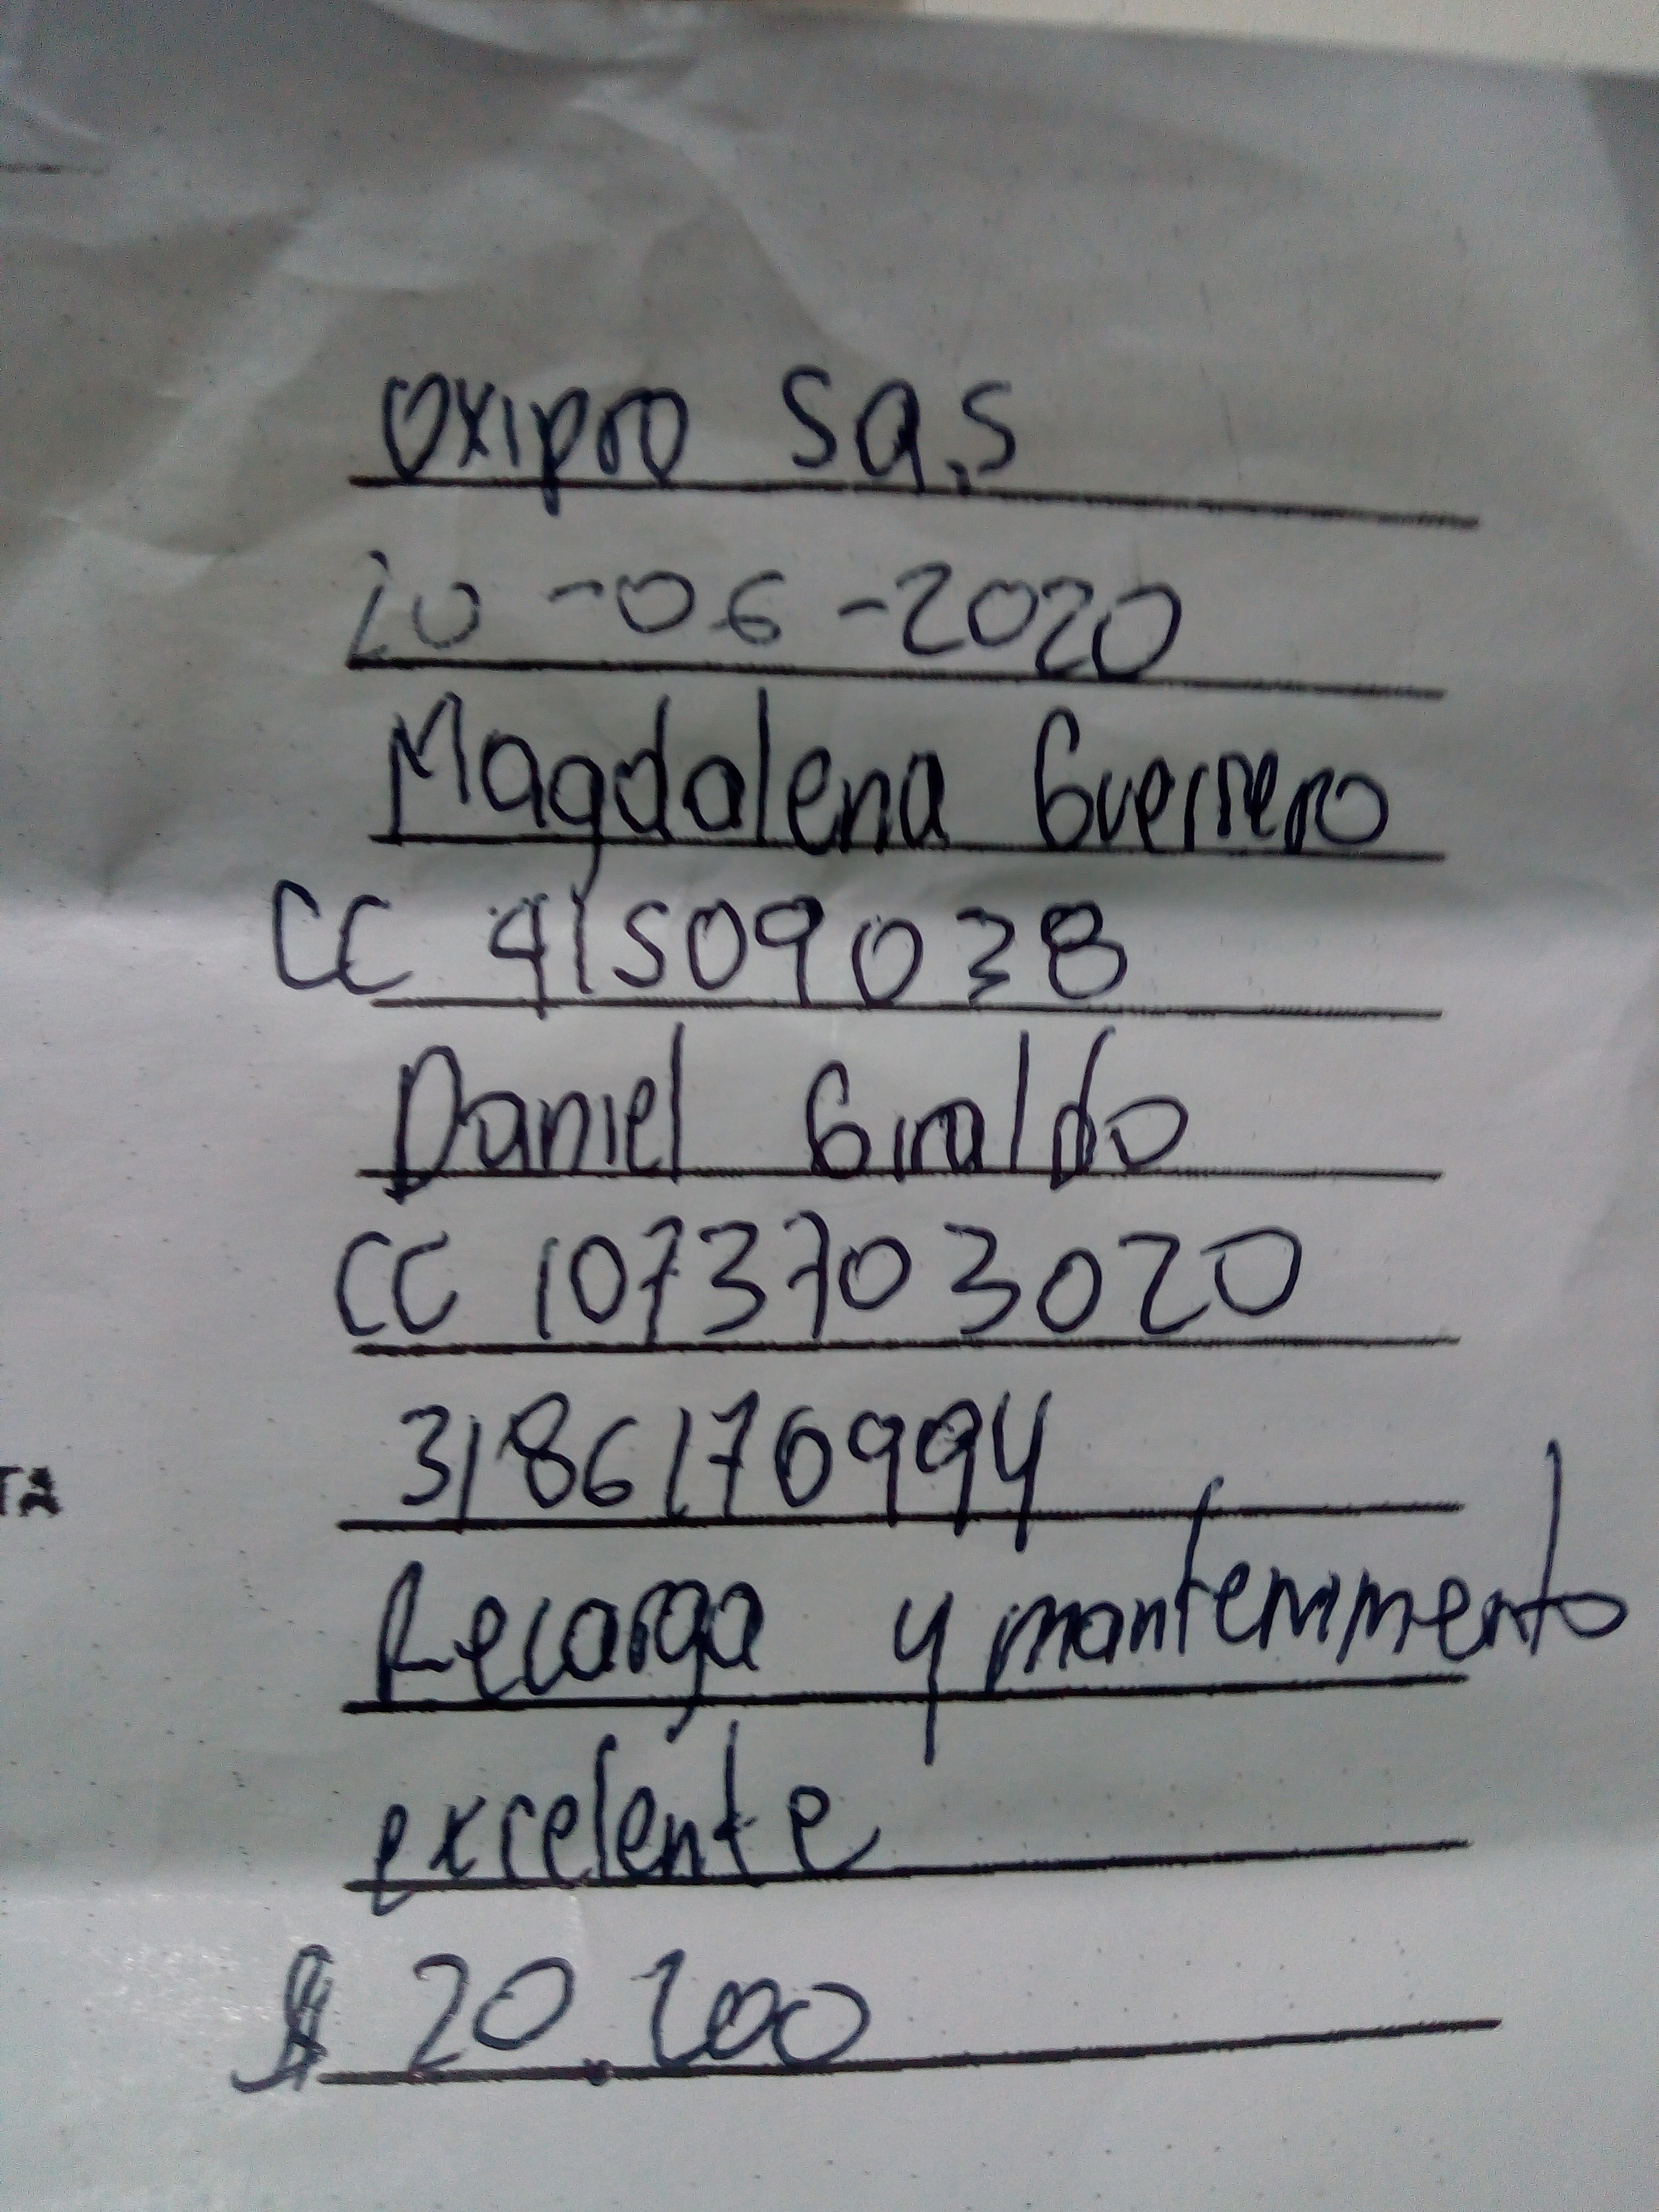 Oxipro Sa.s
20-06-2020
Magdalena Guerrero
CC 41509038
Daniel Giraldo
CC 1073703020
3186170994
TA
Recarga y mantenimiento
excelente
$ 20.200